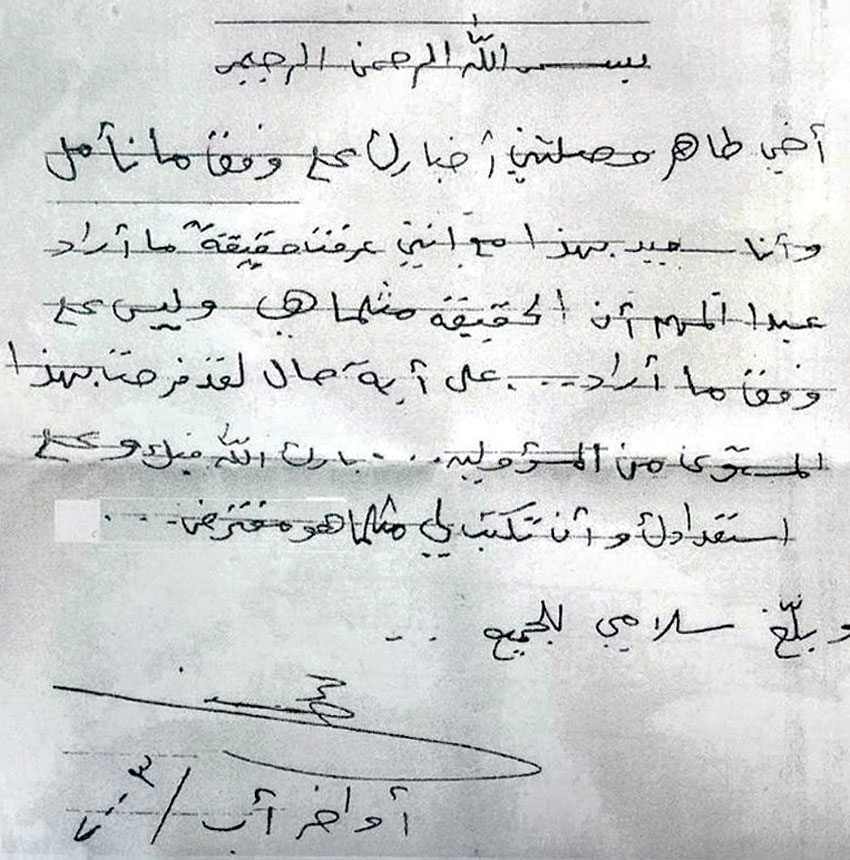 بسم اللّٰه الرحمن الرحيم
أخي طاهر وصلتني أخبارك وفقا ما نأمل
وأنا سعيد بهذا مع أنني عرفت حقيقة ما أراد
المهم أن الحقيقة مثلما هي وليس
وفقا ما أراد ... على أية حال لقد فرحت بهذا
المستوى من المسؤولية ... بارك اللّٰه فيك و
استعدادك وأن تكتب لي مثلما هو مفترض ...
و بلّغ سلامي للجميع ...
أواخر آب /